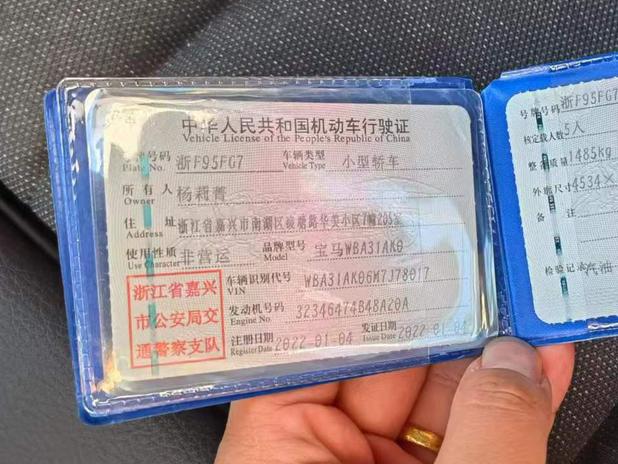 中华人民共和国机动车行驶证
Vehicle License of the People's Republic of China
号牌号码 浙F95FG7 车辆类型 小型轿车
Plate No. Vehicle Type
所有人 杨莉菁
Owner
住址 浙江省嘉兴市南湖区 路华美小区7幢205室
Address
使用性质 非营运 品牌型号 宝马WBA31AK0
Use Character Model
浙江省嘉兴
市公安局交
通警察支队
车辆识别代号 WBA31AK06M7J78017
VIN
发动机号码 32346474B48A20A
Engine No.
注册日期 2022-01-04 发证日期 2022-01-04
Register Date Issue Date
号牌号码 浙F95FG7
核定载人数 5人
整备质量 1485kg
外廓尺寸 4534×
备注
检验记录 汽油